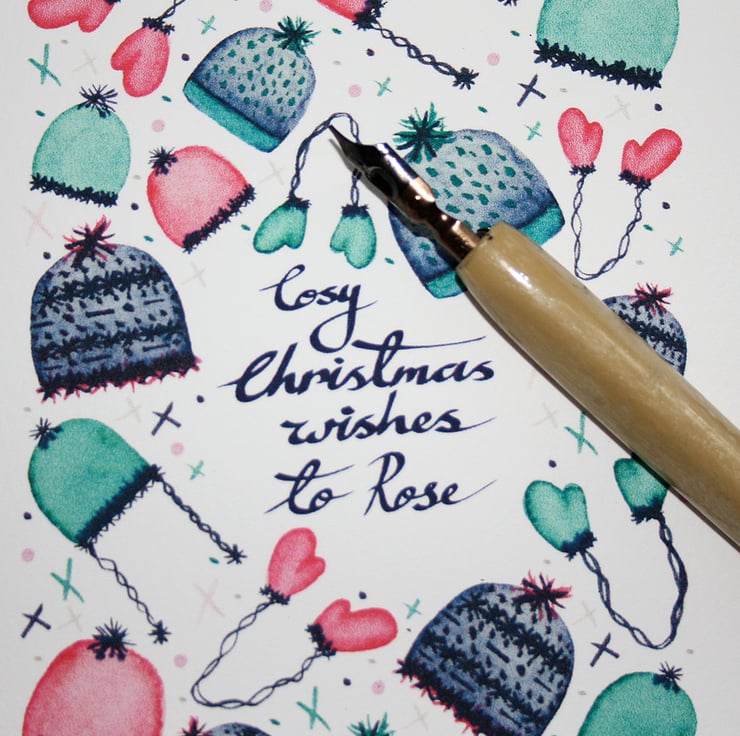 Cosy
Christmas
wishes
to Rose